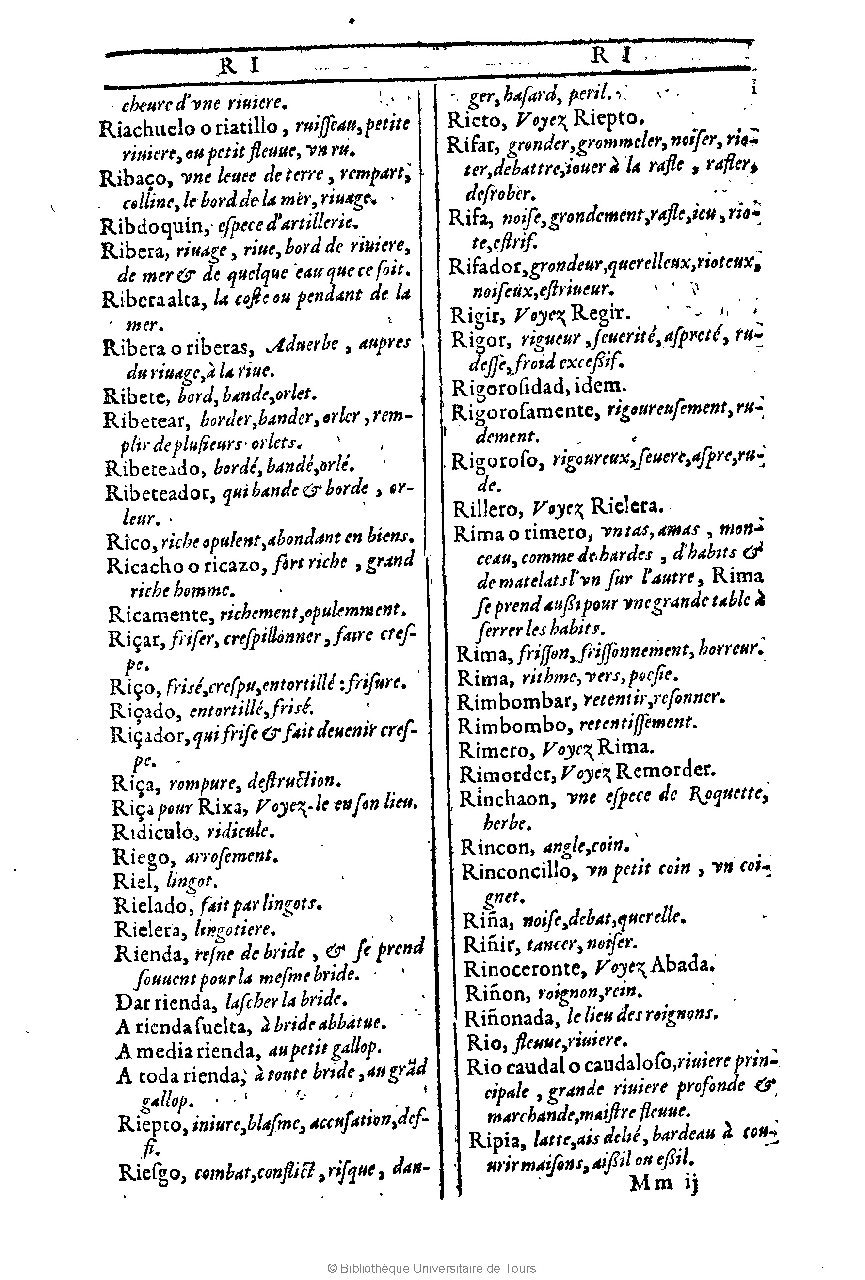 R I
cheure d'vne riuiere.
Riachuelo o riatillo, ruisſeau, petite
riuiere, ou petit fleuue, vn ru.
Ribaço, vne leuee de terre, rempart,
colline, le bord de la mer, riuage.
Ribdoquin, eſpece d'artillerie.
Ribera, riuage, riue, bord de riuiere,
de mer & de quelque eau que ce ſoit.
Ribera alta, la coſte ou pendant de la
mer.
Ribera o riberas, Aduerbe, aupres
du riuage, à la riue.
Ribete, bord, bande, orlet.
Ribetear, border, bander, orler, rem-
plir de pluſieurs orlets.
Ribeteado, bordé, bandé, orlé.
Ribeteador, qui bande & borde, or-
leur.
Rico, riche opulent, abondant en biens.
Ricacho o ricazo, fort riche, grand
riche homme.
Ricamente, richement, opulemment.
Riçar, friſer, creſpillonner, faire creſ-
pe.
Riço, friſé, creſpu, entortillé : friſure.
Riçado, entortillé, friſé.
Riçador, qui friſe & fait deuenir creſ-
pe.
Riça, rompure, deſtruction.
Riça pour Rixa, Voyez-le en ſon lieu.
Ridiculo, ridicule.
Riego, arroſement.
Riel, lingot.
Rielado, fait par lingots.
Rielera, lingotiere.
Rienda, reſne de bride, & ſe prend
ſouuent pour la meſme bride.
Dar rienda, laſcher la bride.
A rienda ſuelta, à bride abbatue.
A media rienda, au petit gallop.
A toda rienda, à toute bride, au grãd
gallop.
Riepto, iniure, blaſme, accuſation, deſ-
fi.
Rieſgo, combat, conflict, riſque, dan-
R I
ger, haſard, peril.
Rieto, Voyez Riepto.
Rifar, gronder, grommeler, noiſer, rio-
ter, debattre, iouer à la rafle, rafler,
deſrober.
Rifa, noiſe, grondement, rafle, ieu, rio-
te, eſtrif.
Rifador, grondeur, querelleux, rioteux,
noiſeux, eſtriueur.
Rigir, Voyez Regir.
Rigor, rigueur, ſeuerité, aſpreté, ru-
deſſe, froid exceßif.
Rigoroſidad, idem.
Rigoroſamente, rigoureuſement, ru-
dement.
Rigoroſo, rigoureux, ſeuere, aſpre, ru-
de.
Rillero, Voyez Rielera.
Rima o rimero, vn tas, amas, mon-
ceau, comme de hardes, d'habits &
de matelats l'vn ſur l'autre, Rima
ſe prend außi pour vne grande table à
ſerrer les habits.
Rima, friſſon, friſſonnement, horreur.
Rima, rithme, vers, poeſie.
Rimbombar, retentir, reſonner.
Rimbombo, retentiſſement.
Rimero, Voyez Rima.
Rimorder, Voyez Remorder.
Rinchaon, vne eſpece de Roquette,
herbe.
Rincon, angle, coin.
Rinconcillo, vn petit coin, vn coi-
gnet.
Riña, noiſe, debat, querelle.
Riñir, tancer, noiſer.
Rinoceronte, Voyez Abada.
Riñon, roignon, rein.
Riñonada, le lieu des roignons.
Rio, fleuue, riuiere.
Rio caudal o caudaloſo, riuiere prin-
cipale, grande riuiere profonde &
marchande, maiſtre fleuue.
Ripia, latte, ais delié, bardeau à cou-
urir maiſons, aißil ou eßil.
Mm ij
© Bibliothèque Universitaire de Tours